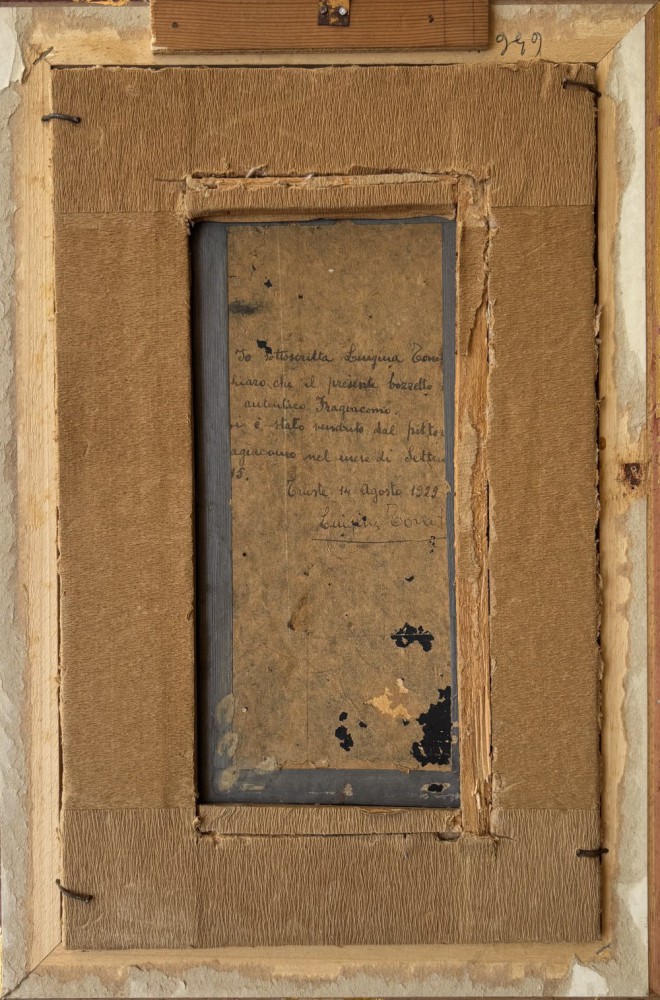 949
Io ttoscritta Luigina Tor
hiaro che il presente bozzetto
autentico Fragiacomo.
è stato venduto dal pitto
agiacomo nel mese di Sette
15.
Trieste 14 Agosto 1929
Luigina